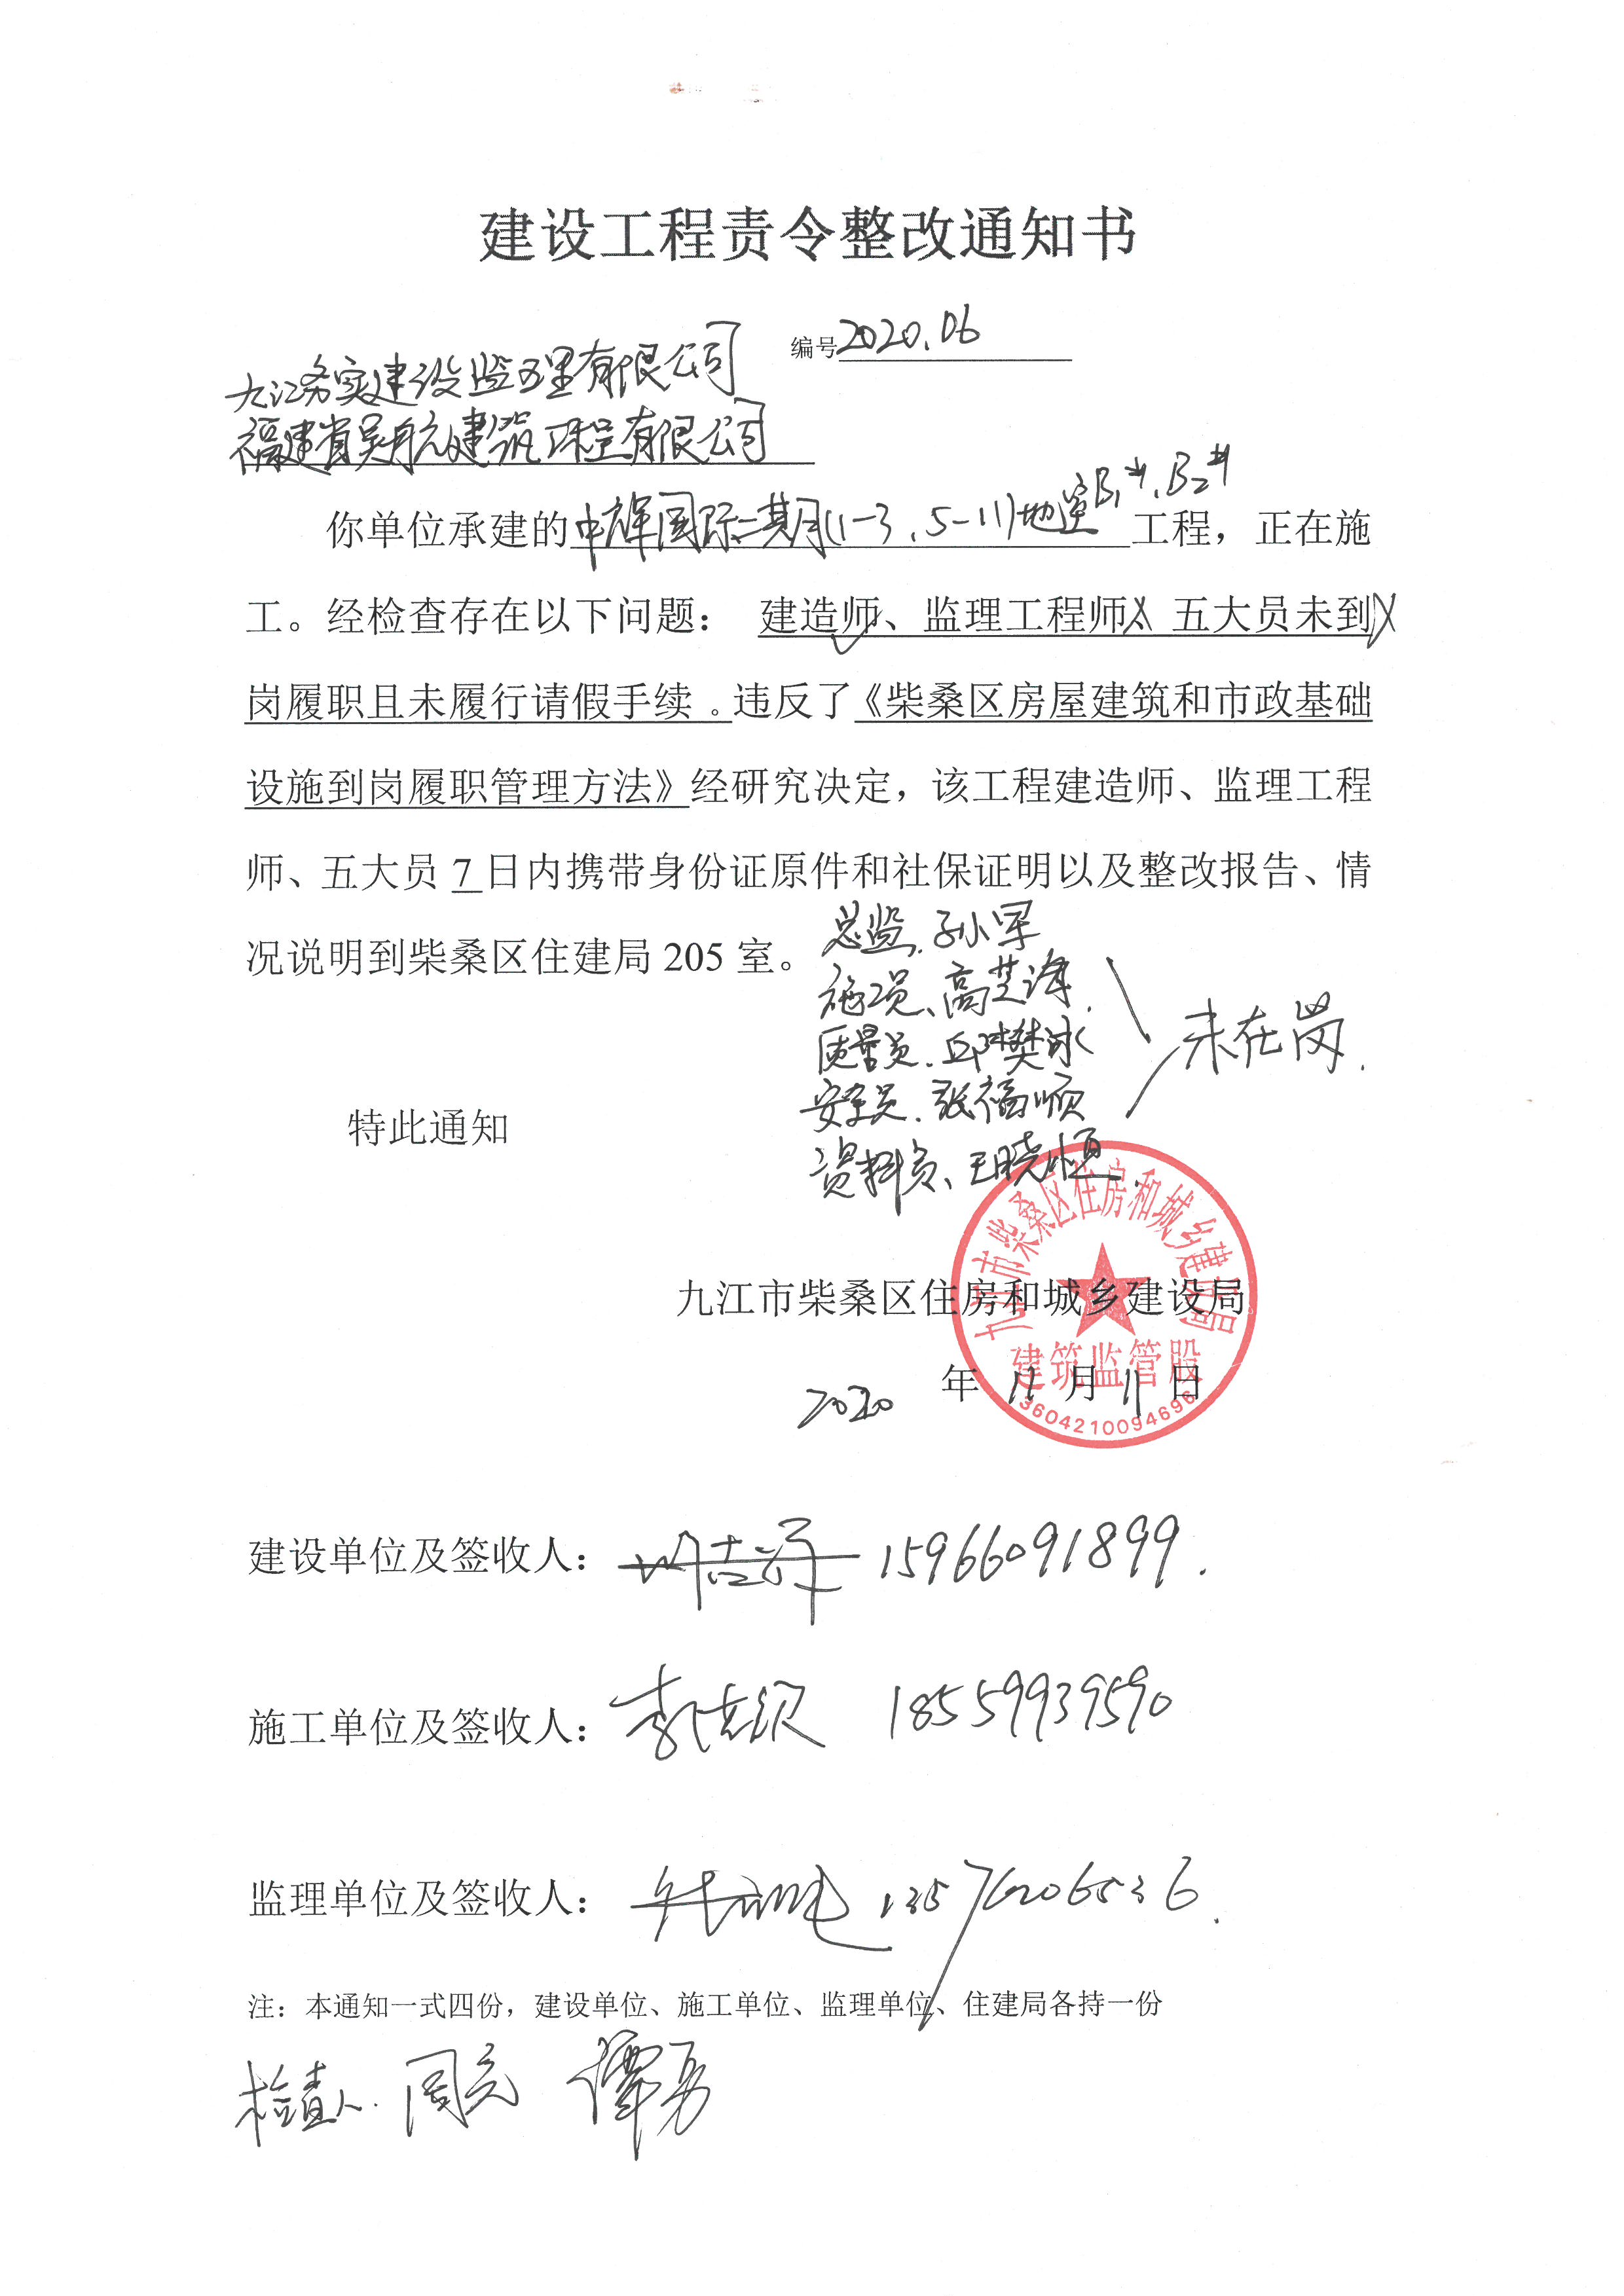 建设工程责令整改通知书
编号2020.06
九江务实建设监理有限公司
福建省吴航建筑工程有限公司
你单位承建的中辉国际二期(1-3、5-11)地室B1#、B2#工程，正在施
工。经检查存在以下问题： 建造师、监理工程师、五大员未到
岗履职且未履行请假手续。违反了《柴桑区房屋建筑和市政基础
设施到岗履职管理方法》经研究决定，该工程建造师、监理工程
师、五大员 7 日内携带身份证原件和社保证明以及整改报告、情
况说明到柴桑区住建局 205 室。
总监、孙小军
施工员、高芝涛
质量员、邱樊冰
安全员、张福顺
资料员、王晓恒
未在岗
特此通知
九江市柴桑区住房和城乡建设局
2020 年 11 月 11 日
九江市柴桑区住房和城乡建设局
建筑监管股
3604210094696
建设单位及签收人： 15966091899
施工单位及签收人： 18559939590
监理单位及签收人： 13576206536
注：本通知一式四份，建设单位、施工单位、监理单位、住建局各持一份
检查人 周亮 谭勇